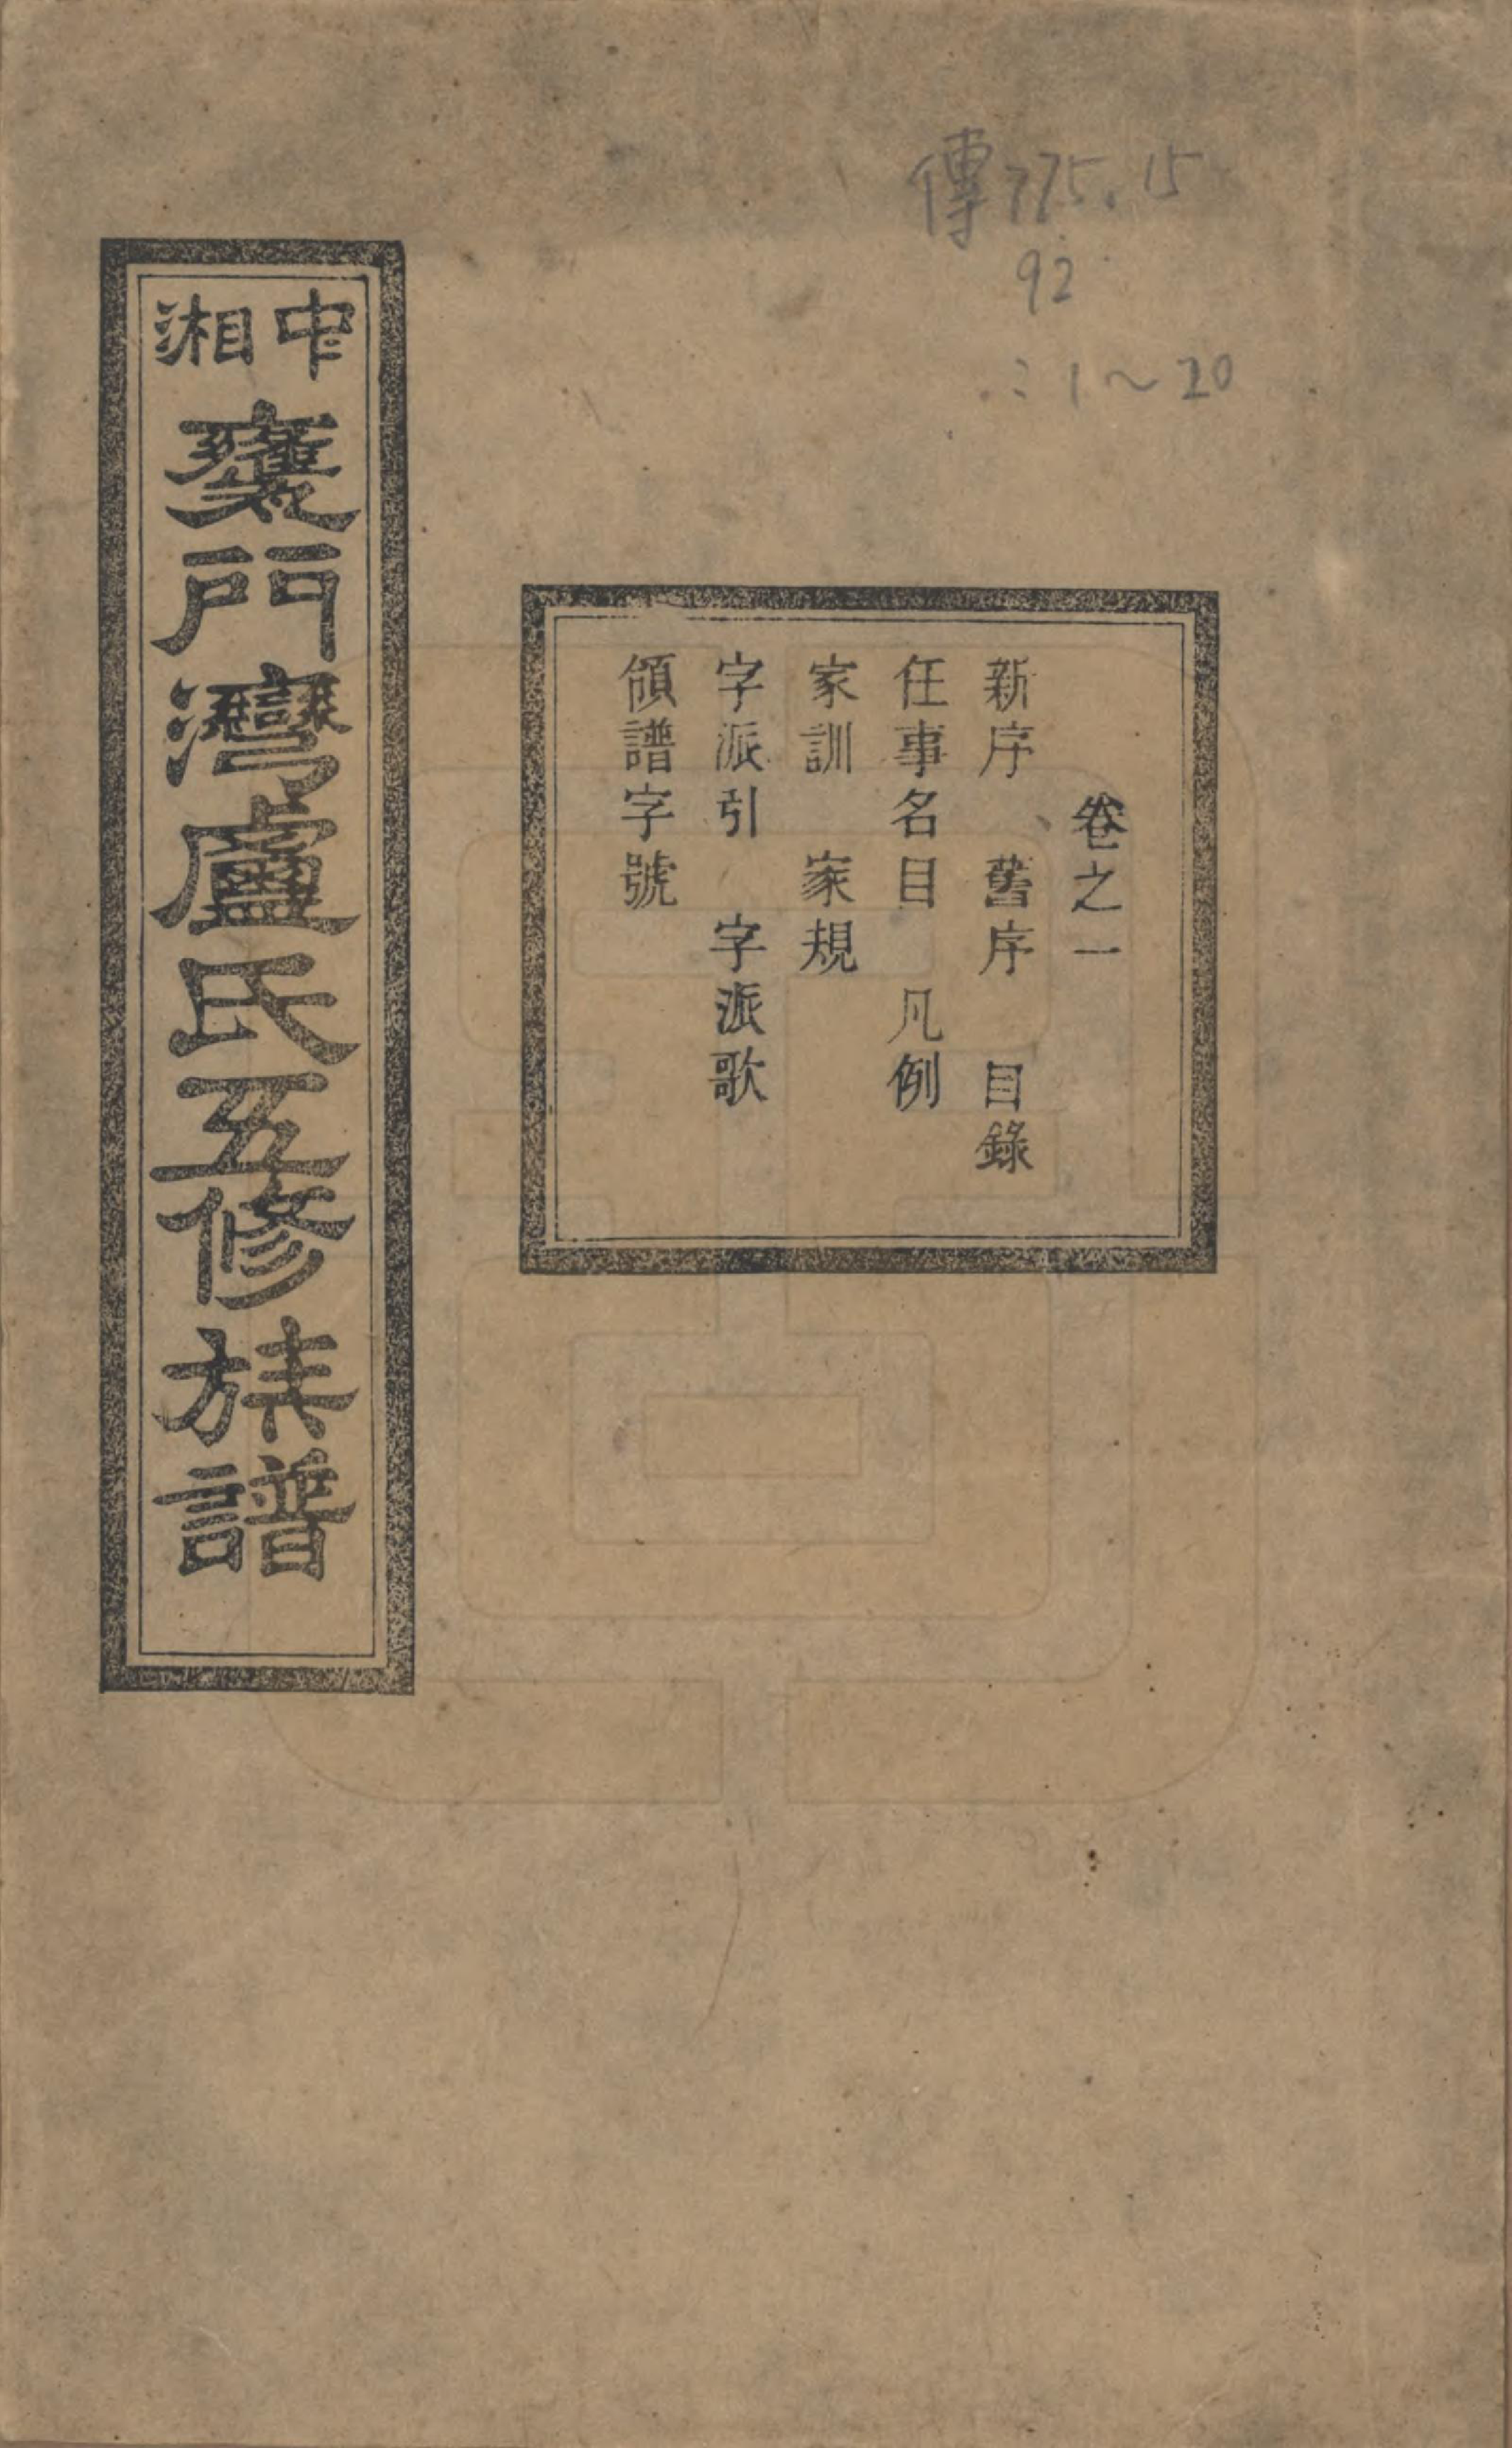 傳775.15
92
:1~20
卷之一
新序　舊序　目錄
任事名目　凡例
家訓　家規
字派引　字派歌
領譜字號
中湘
甕門灣盧氏五修族譜